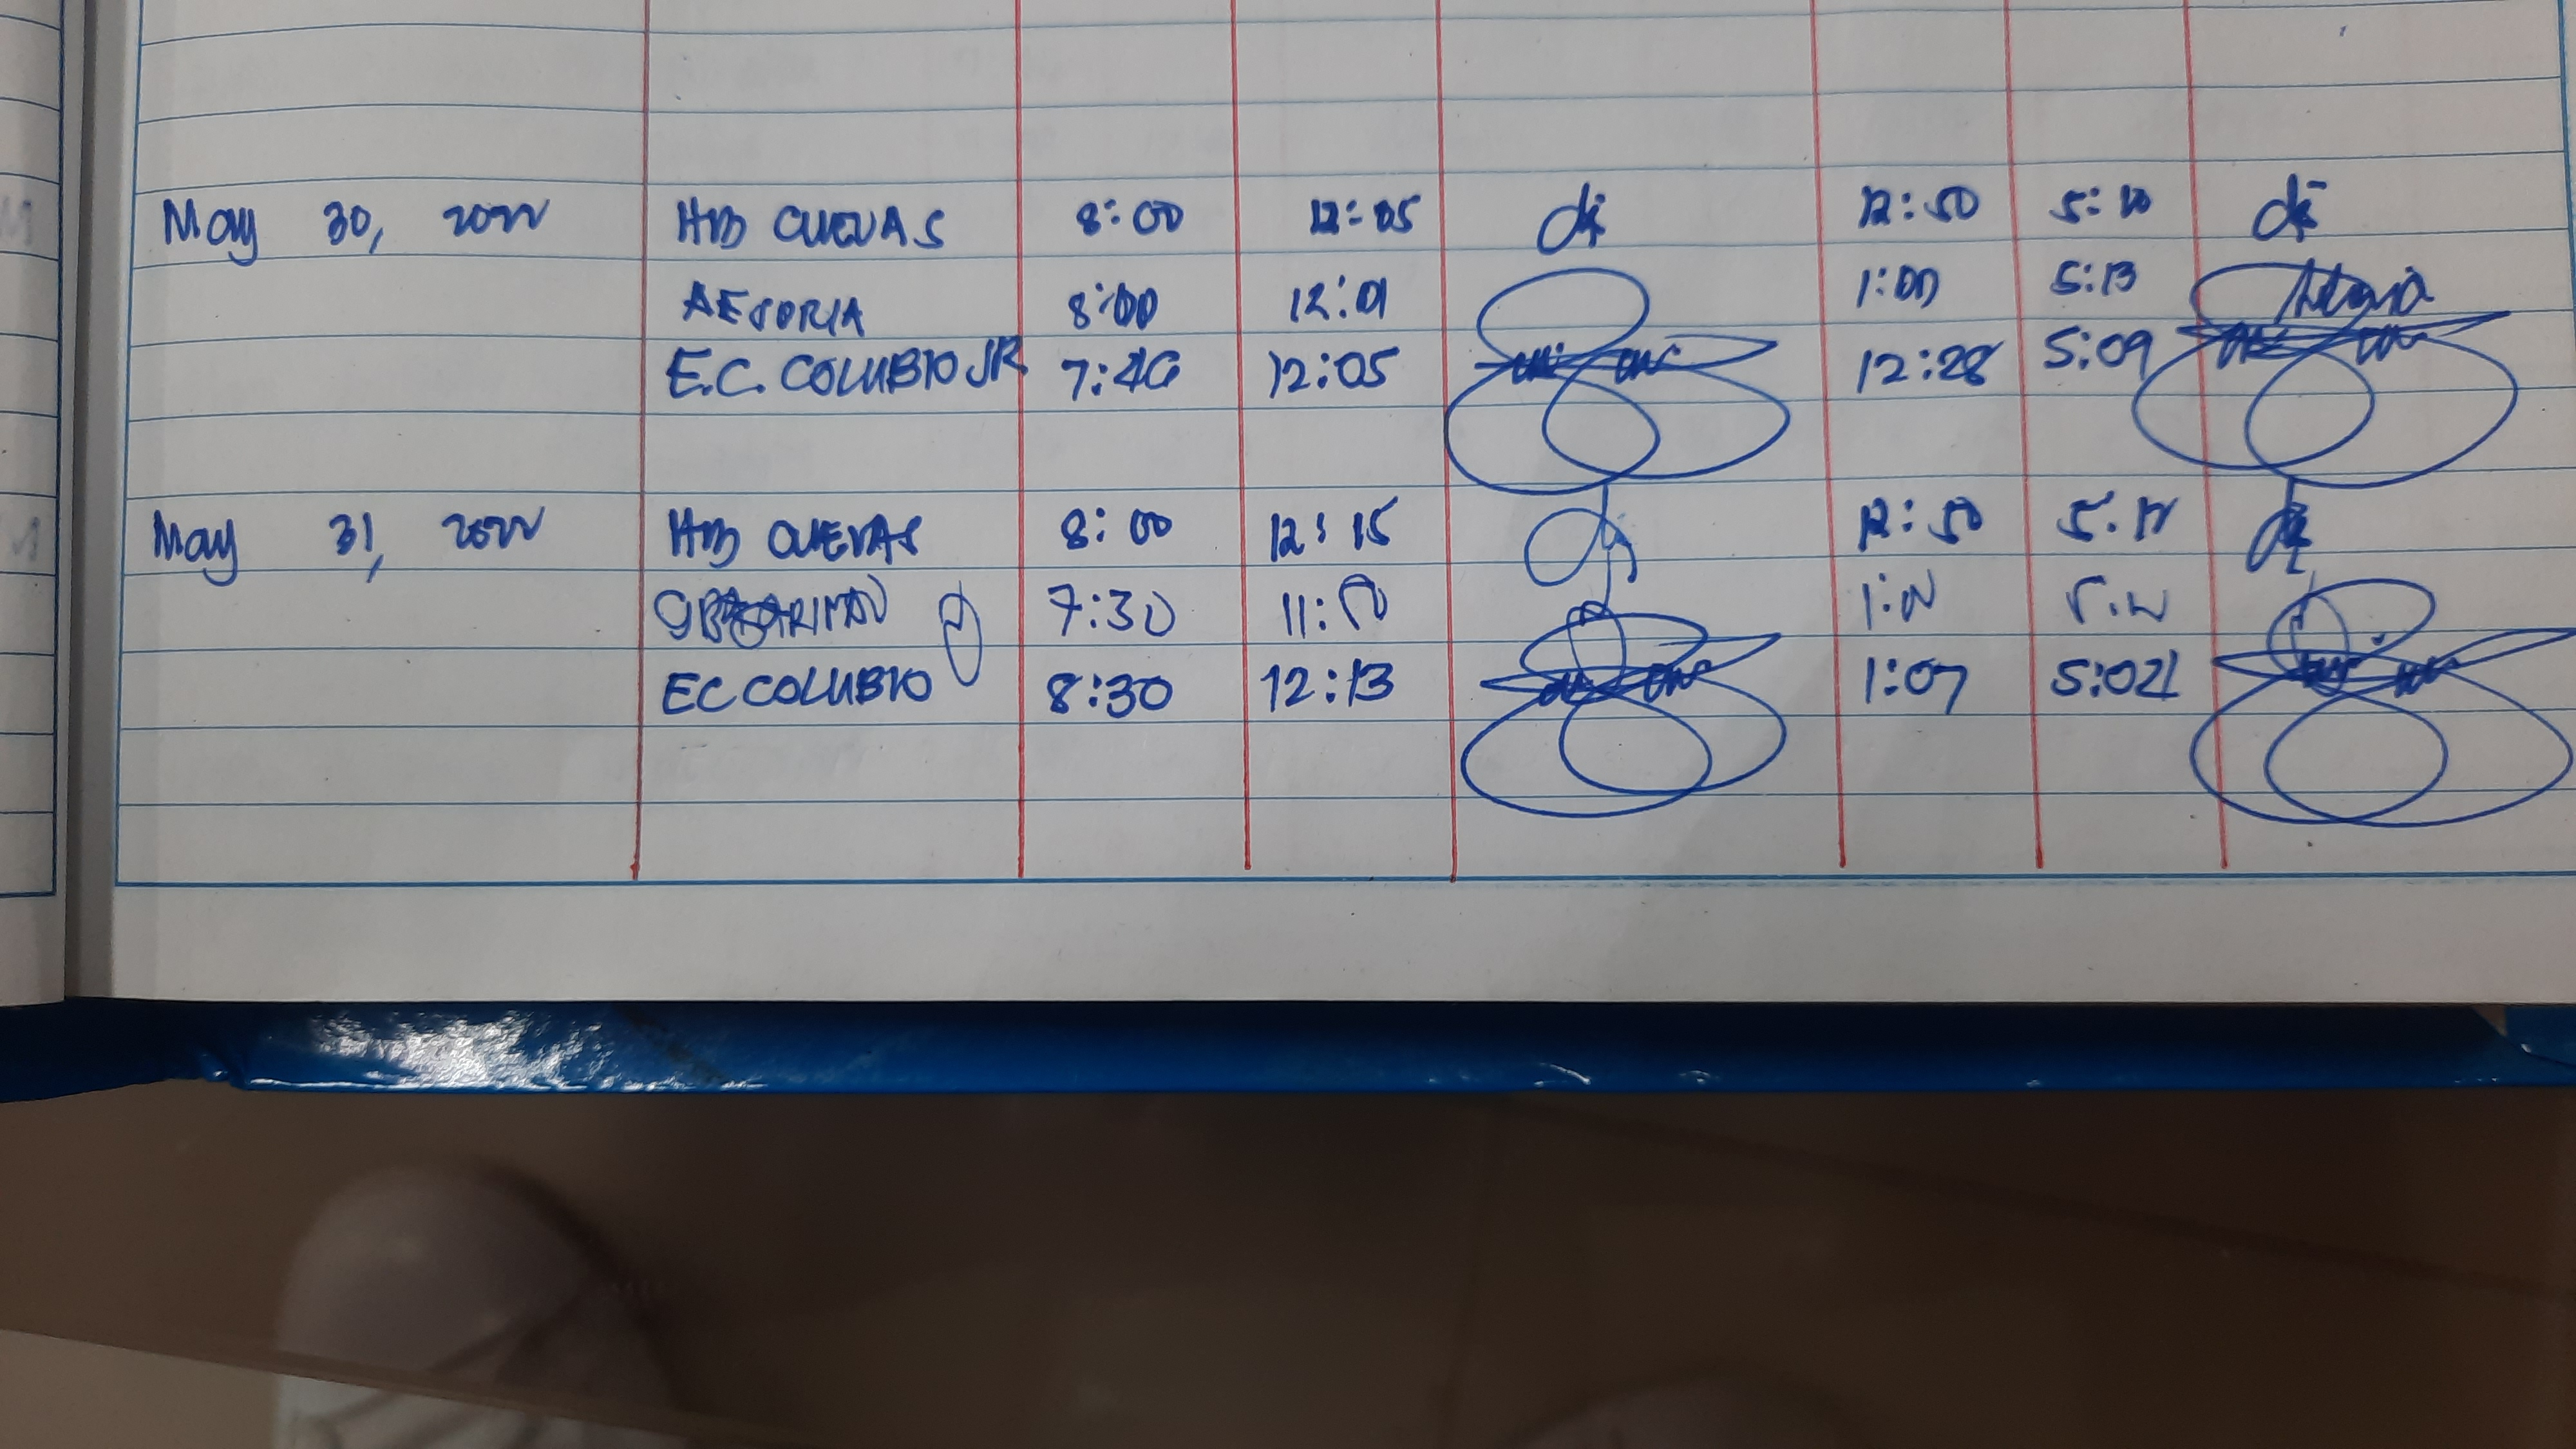 May 30, 2022 HMB CUEVAS 8:00 12:05 12:50 5:10
AESORIA 8:00 12:01 1:00 5:13
E.C. COLUBIO JR 7:46 12:05 12:28 5:09
May 31, 2022 HMB CUEVAS 8:00 12:15 12:50 5:12
7:30 11:50
EC COLUBIO 8:30 12:13 1:07 5:02